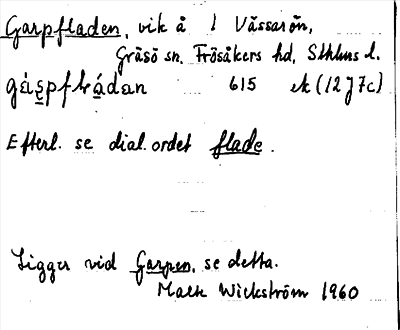 Garpfladen, vik å l Vässarön,
Gräsö sn. Frösåkers hd, Sthlms l.
gáṣpfḷạ́dan 615 ek (12J7c)
Efterl. se dial. ordet flade.
Ligger vid Garpen, se detta.
Mats Wickström 1960